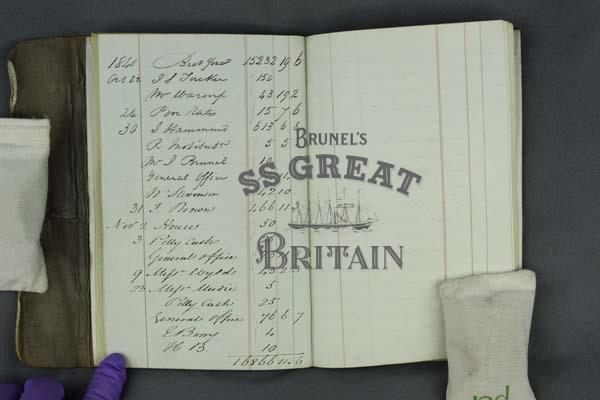 1840 Brot forwd 15232 19 6
Oct 22 J S Tucker 150
Mr Warmp 43 19 2
24 Poor Rates 15 7 6
30 J Hammond 613 6 8
R Institute 5 5
Mr I Brunel 10
General Office
W Stevenson 42 10
31 J Brown 466 11
Nov 2 House 50
3 Petty Cash
General Office
9 Messrs Wyld
23 Messrs Mudie 5
Petty Cash 25
General Office 76 6 7
G Berry 4
H B. 10
16866 11 6
BRUNEL'S
SS GREAT
BRITAIN